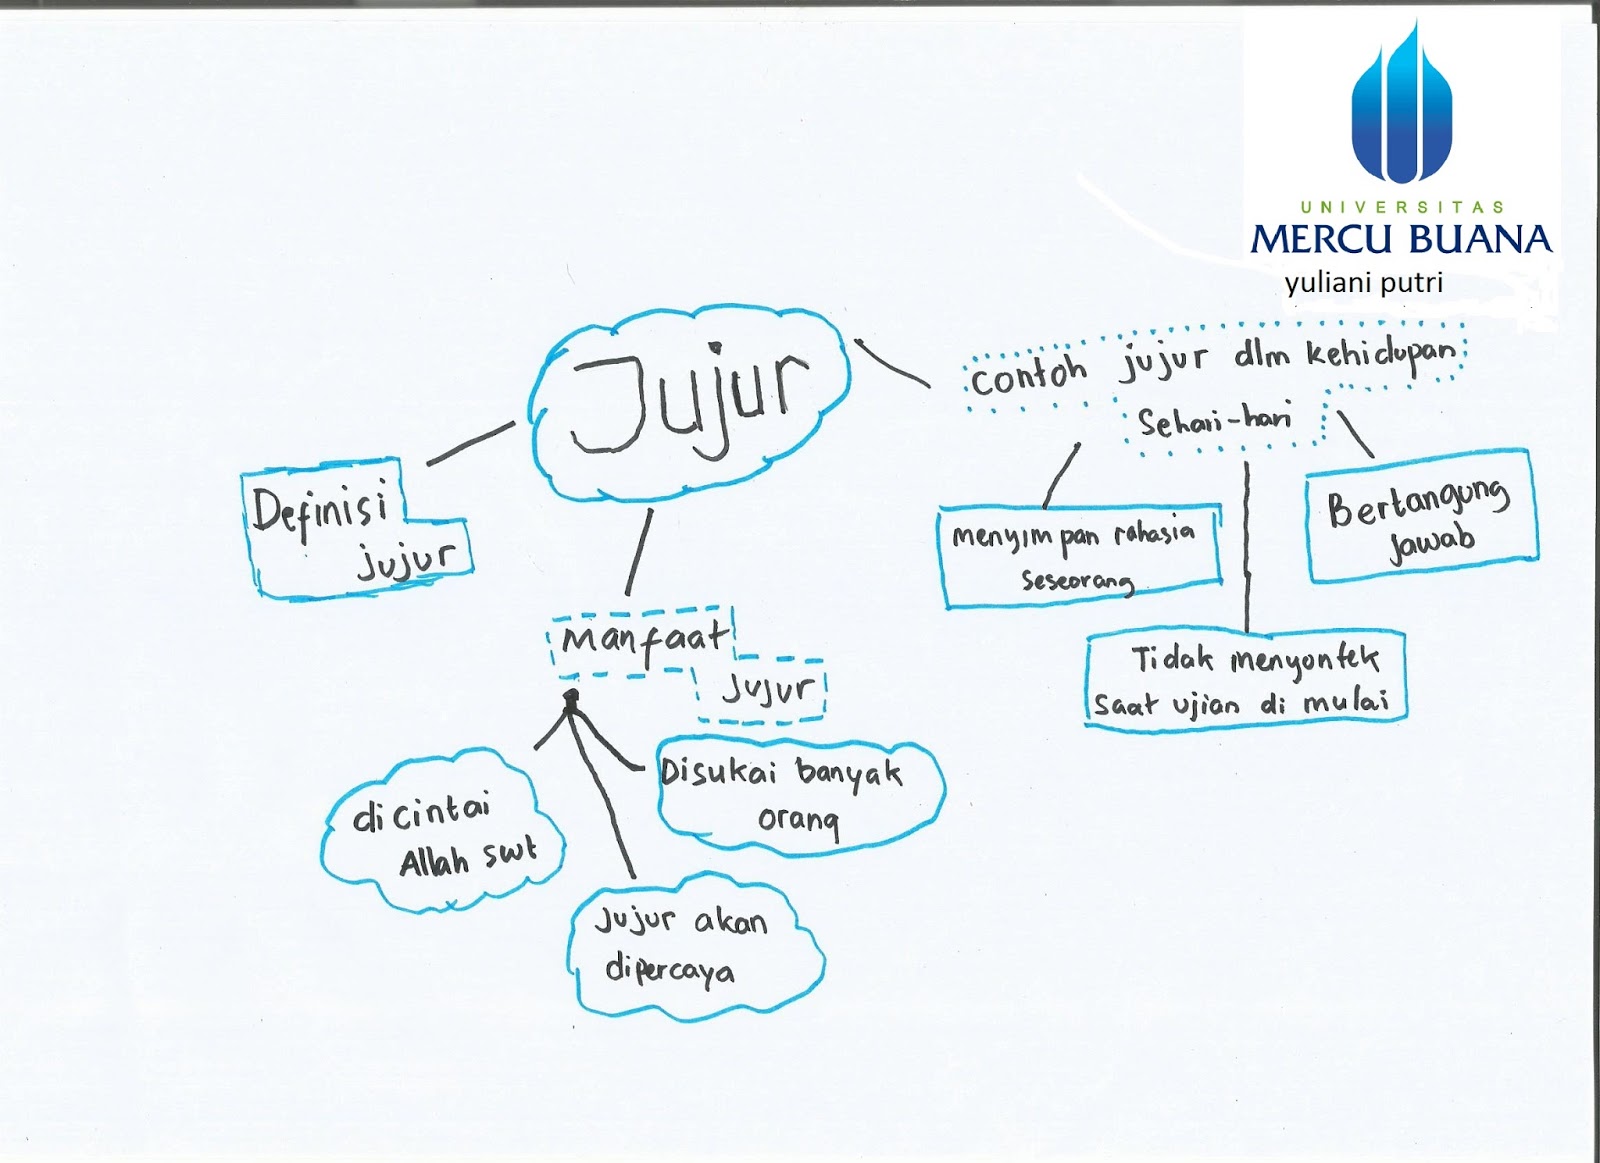 UNIVERSITAS
MERCU BUANA
yuliani putri
Jujur
contoh jujur dlm kehidupan
Sehari-hari
Definisi
jujur
menyimpan rahasia
seseorang
Bertangung
jawab
Tidak menyontek
saat ujian di mulai
Manfaat
jujur
dicintai
Allah swt
Disukai banyak
orang
jujur akan
dipercaya